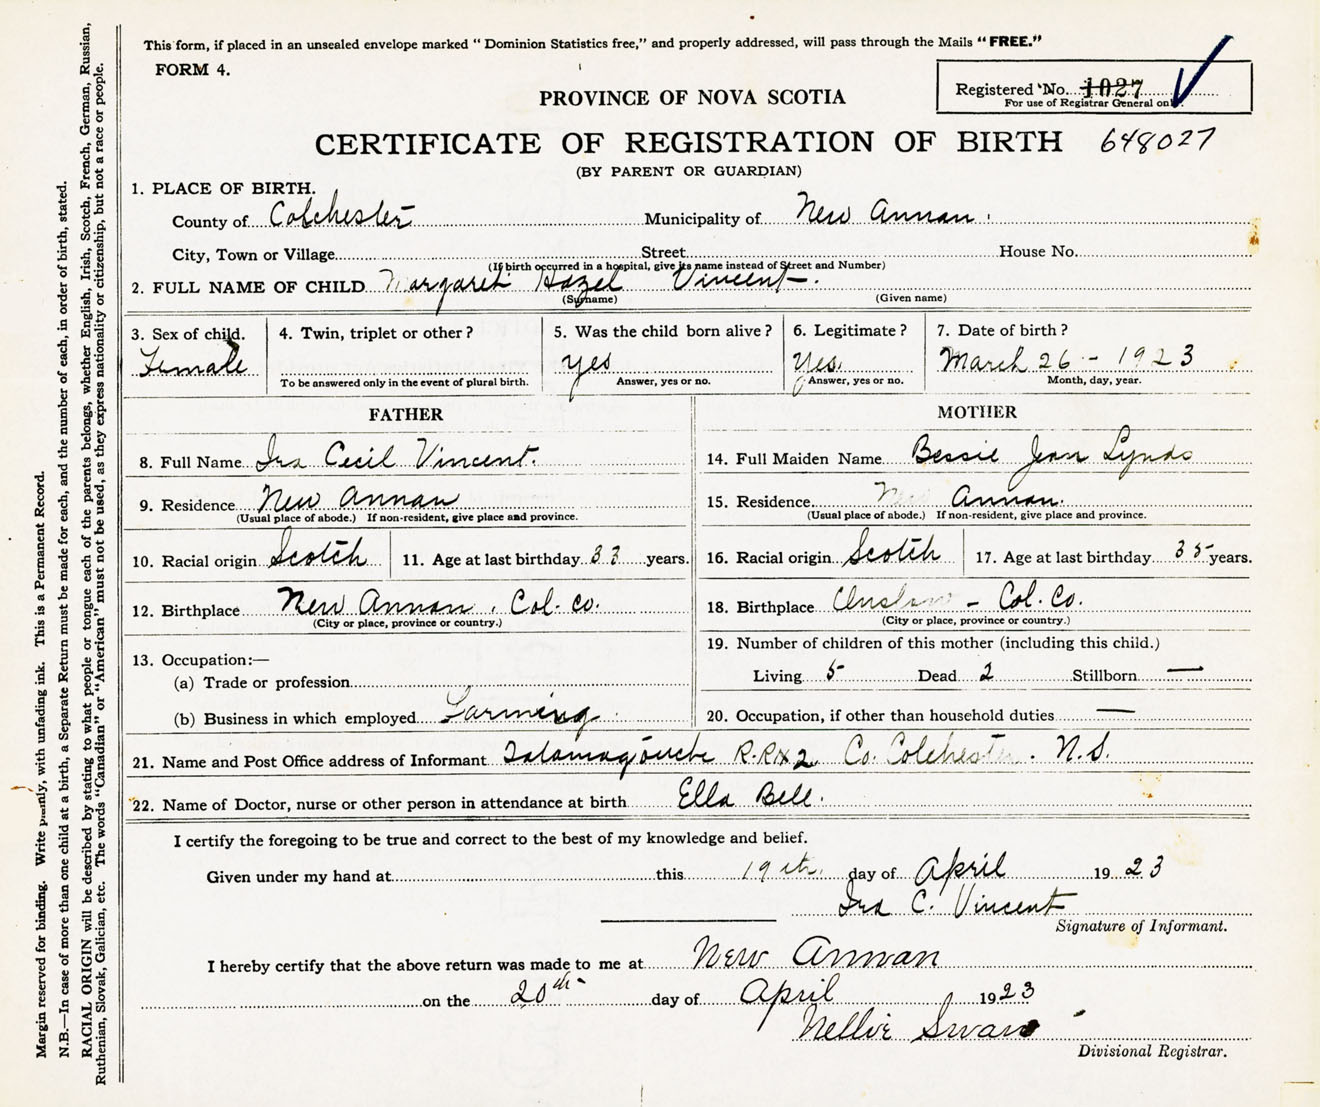 This form, if placed in an unsealed envelope marked "Dominion Statistics free," and properly addressed, will pass through the Mails "FREE."
FORM 4.
Registered No. 1027
For use of Registrar General only.
PROVINCE OF NOVA SCOTIA
CERTIFICATE OF REGISTRATION OF BIRTH 648027
(BY PARENT OR GUARDIAN)
1. PLACE OF BIRTH.
County of Colchester Municipality of New Annan
City, Town or Village Street House No.
(If birth occurred in a hospital, give its name instead of Street and Number)
2. FULL NAME OF CHILD Margaret Hazel Vincent.
(Surname) (Given name)
3. Sex of child. 4. Twin, triplet or other? 5. Was the child born alive? 6. Legitimate? 7. Date of birth?
Female yes yes. March 26 - 1923
To be answered only in the event of plural birth. Answer, yes or no. Answer, yes or no. Month, day, year.
FATHER
8. Full Name Ira Cecil Vincent.
9. Residence New Annan
(Usual place of abode.) If non-resident, give place and province.
10. Racial origin Scotch 11. Age at last birthday 33 years.
12. Birthplace New Annan. Col. Co.
(City or place, province or country.)
13. Occupation:—
(a) Trade or profession
(b) Business in which employed Farming
MOTHER
14. Full Maiden Name Bessie Jean Lynds
15. Residence New Annan.
(Usual place of abode.) If non-resident, give place and province.
16. Racial origin Scotch 17. Age at last birthday 35 years.
18. Birthplace Onslow - Col. Co.
(City or place, province or country.)
19. Number of children of this mother (including this child.)
Living 5 Dead 2 Stillborn —
20. Occupation, if other than household duties —
21. Name and Post Office address of Informant Tatamagouche R.R. 2 Co. Colchester. N.S.
22. Name of Doctor, nurse or other person in attendance at birth Ella Bell.
I certify the foregoing to be true and correct to the best of my knowledge and belief.
Given under my hand at this 19th. day of April 1923
Ira C. Vincent
Signature of Informant.
I hereby certify that the above return was made to me at New Annan
on the 20th day of April 1923
Nellie Swan
Divisional Registrar.
Margin reserved for binding. Write plainly, with unfading ink. This is a Permanent Record.
N.B.—In case of more than one child at a birth, a Separate Return must be made for each, and the number of each, in order of birth, stated.
RACIAL ORIGIN will be described by stating to what people or tongue each of the parents belongs, whether English, Irish, Scotch, French, German, Russian,
Ruthenian, Slovak, Galician, etc. The words "Canadian" or "American" must not be used, as they express nationality or citizenship, but not a race or people.